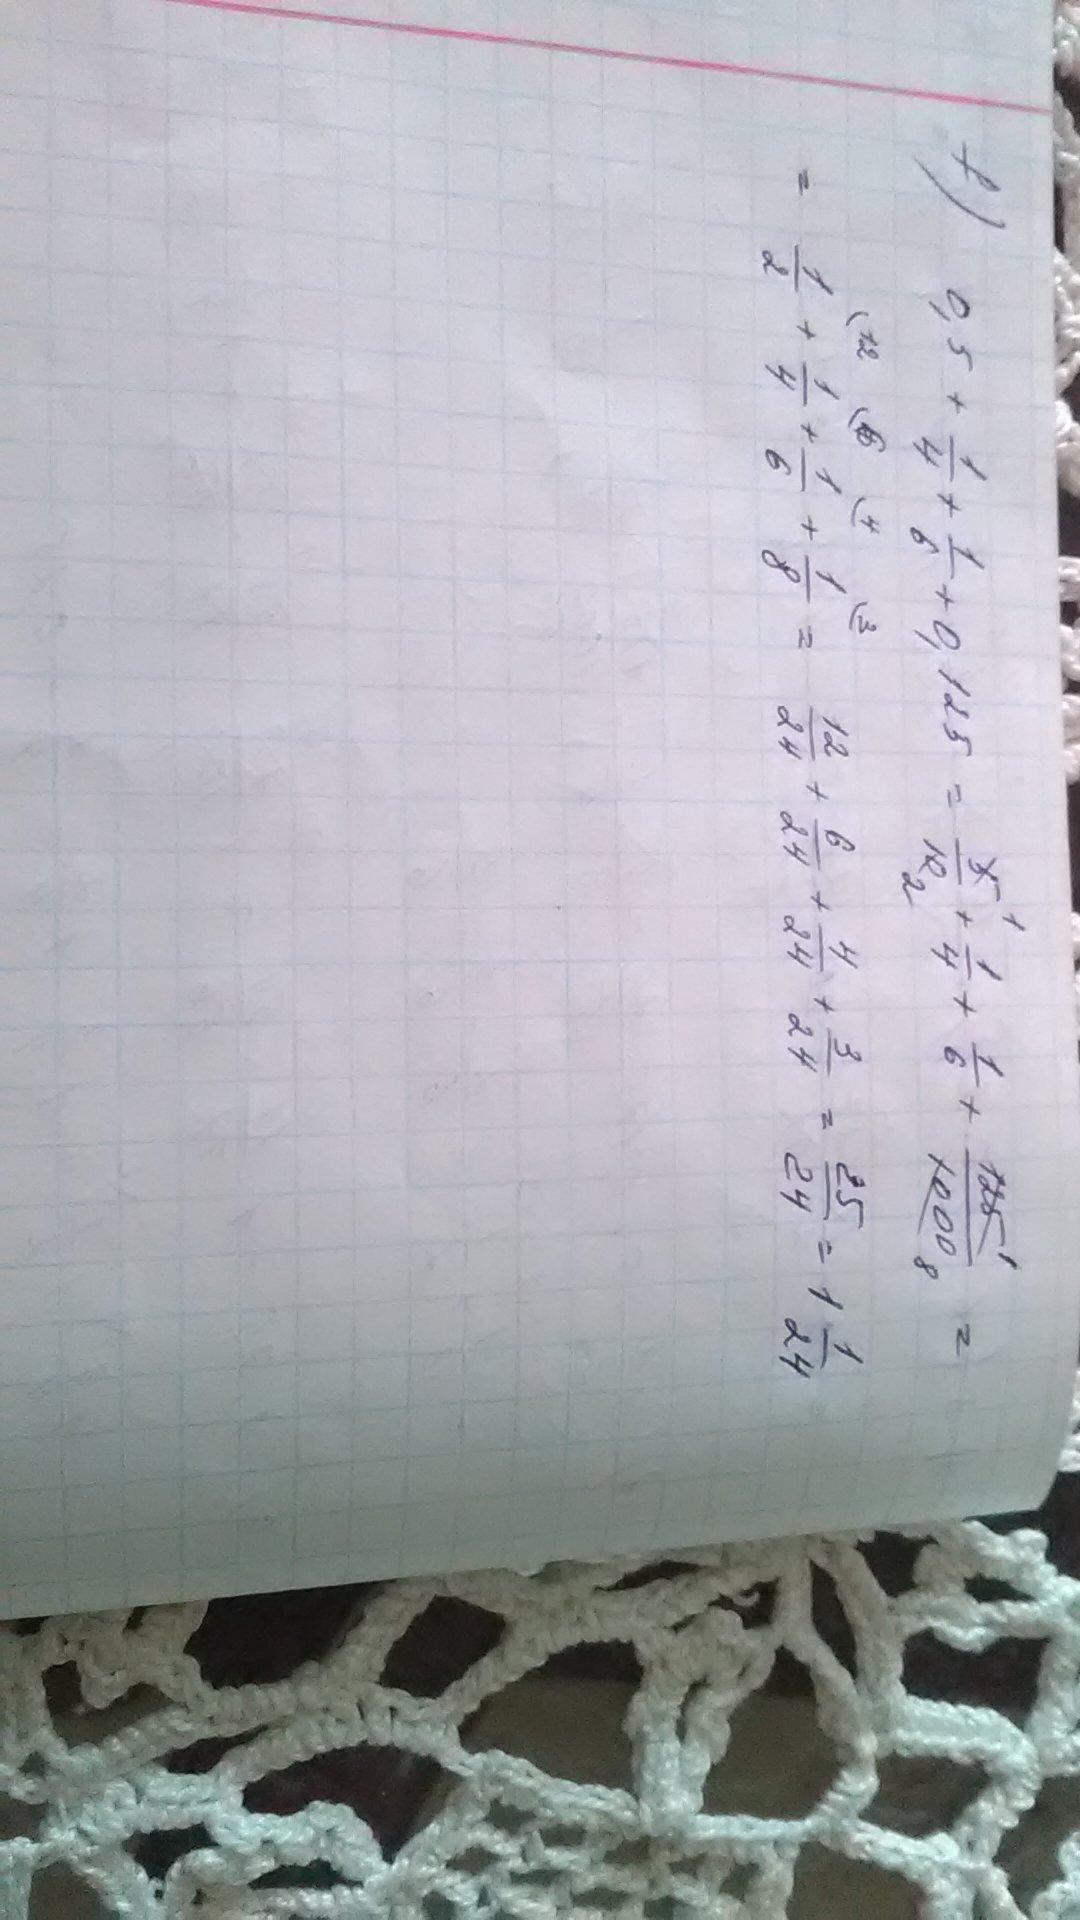 f) 0,5 + 1/4 + 1/6 + 0,125 = 5¹/10₂ + 1/4 + 1/6 + 125¹/1000₈ =
= 1/2 (12 + 1/4 (6 + 1/6 (4 + 1/8 (3 = 12/24 + 6/24 + 4/24 + 3/24 = 25/24 = 1 1/24